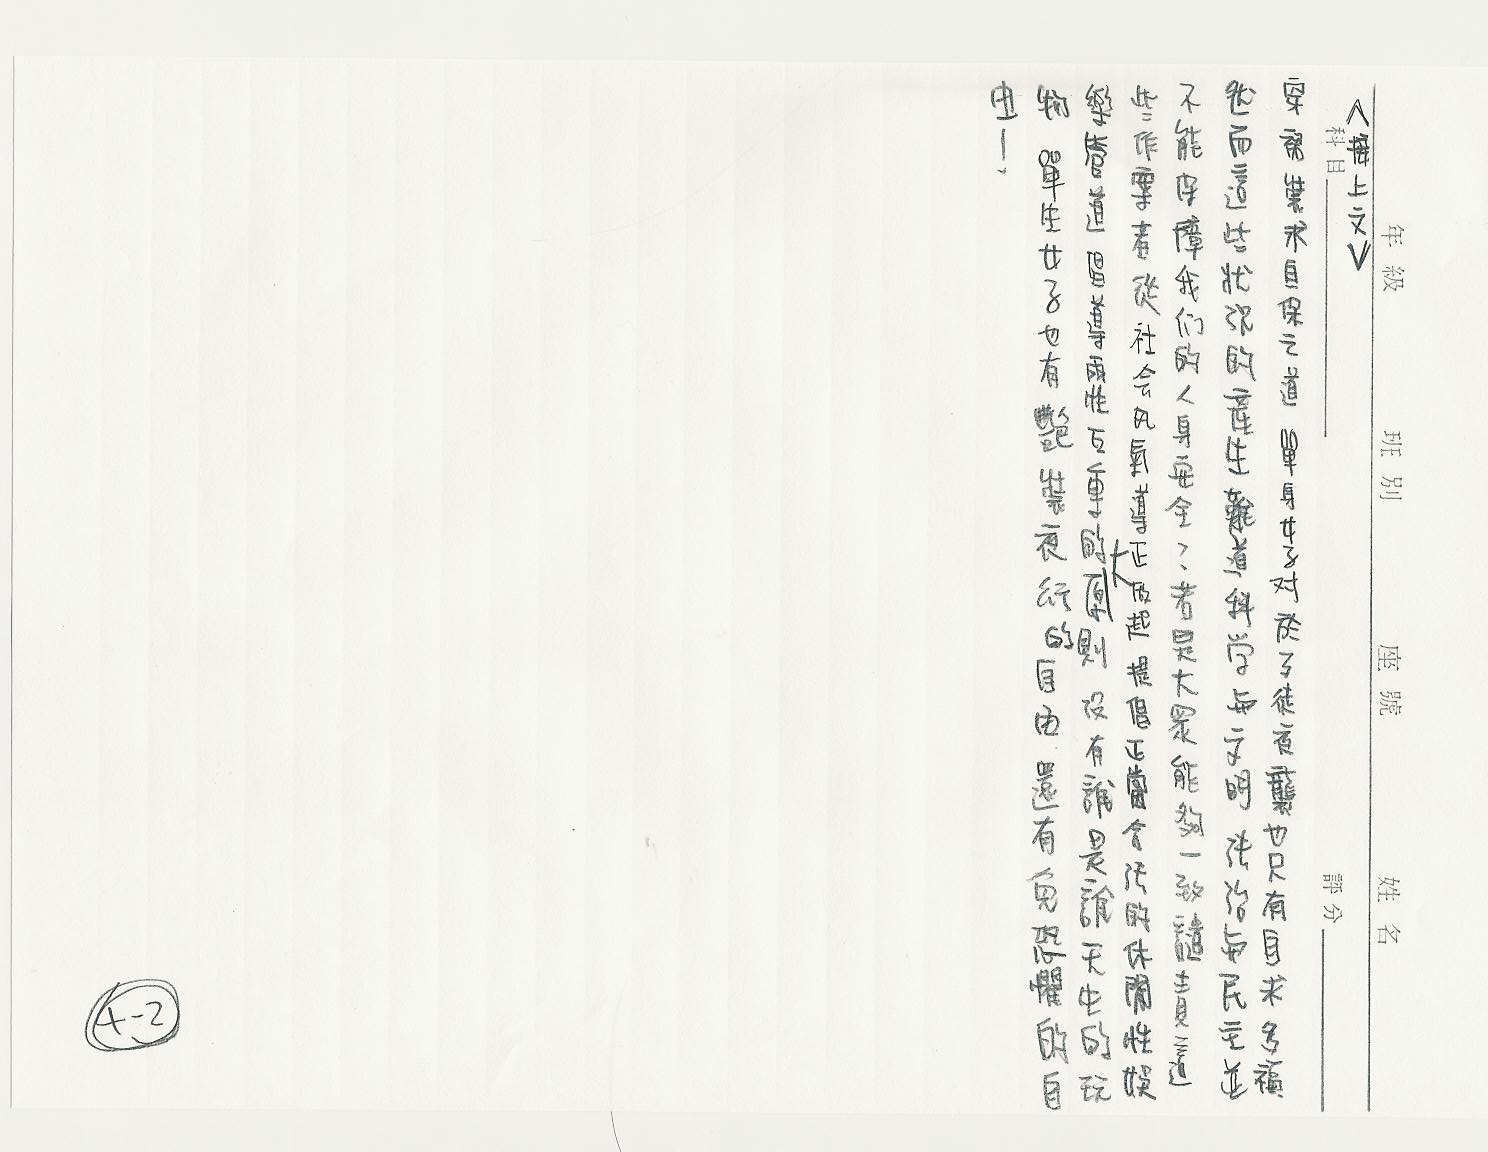 年級 班別 座號 姓名
科目 評分
<接上文>
穿褲裝求自保之道 單身女子対於歹徒夜襲也只有自求多福
然而這些狀況的產生難道科学与文明 法治与民主並
不能保障我们的人身安全？、若是大眾能夠一致譴責這
些作孽者從社会風氣導正做起 提倡正當合法的休閒性娛
樂管道 倡導兩性互重的大原則 沒有誰是誰天生的玩
物 單生女子也有艷裝夜行的自由 還有免恐懼的自
由！、
4-2